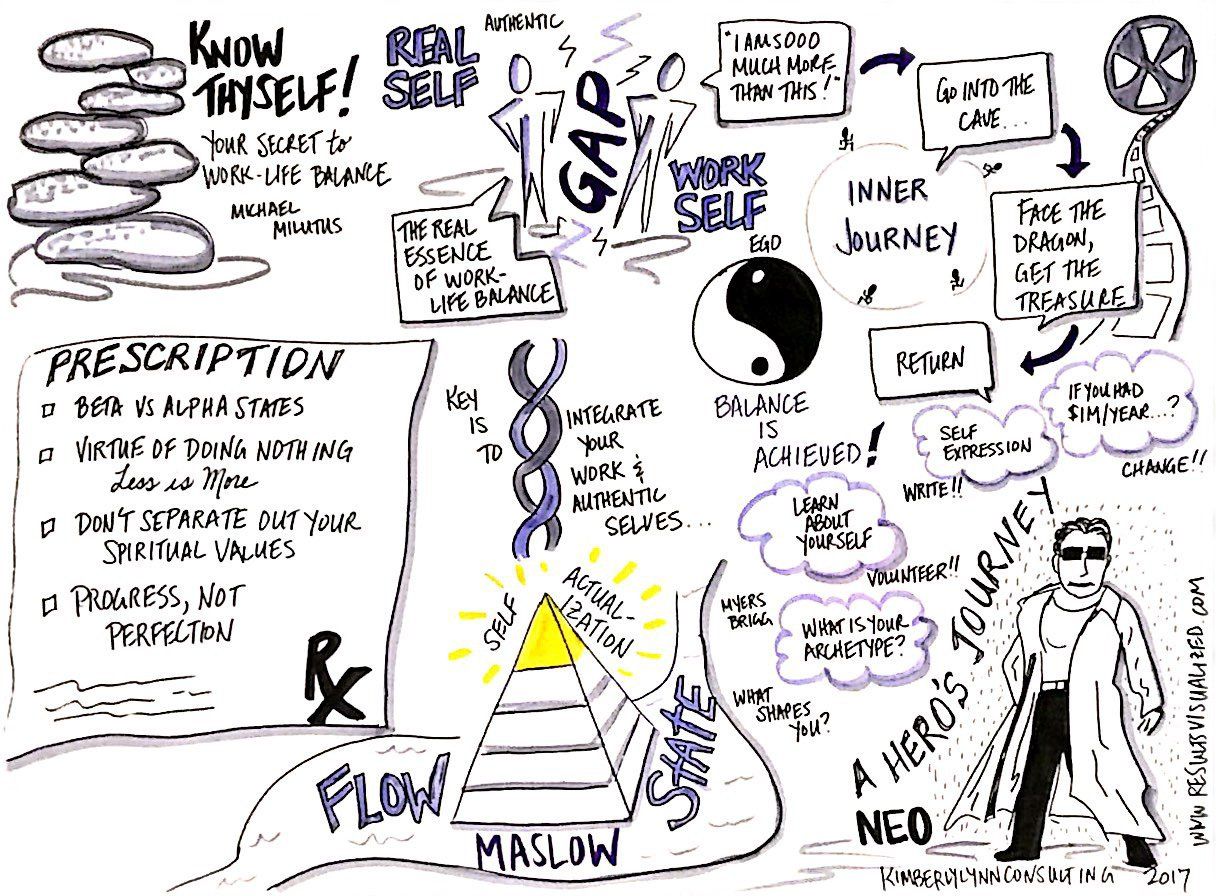 KNOW
THYSELF!
YOUR SECRET to
WORK-LIFE BALANCE
MICHAEL
MILUTUS
REAL
SELF
AUTHENTIC
GAP
WORK
SELF
EGO
THE REAL
ESSENCE
OF WORK-
LIFE BALANCE
"I AM SOOO
MUCH MORE
THAN THIS!"
GO INTO THE
CAVE...
INNER
JOURNEY
FACE THE
DRAGON,
GET THE
TREASURE
RETURN
PRESCRIPTION
BETA VS ALPHA STATES
VIRTUE OF DOING NOTHING
Less is More
DON'T SEPARATE OUT YOUR
SPIRITUAL VALUES
PROGRESS, NOT
PERFECTION
Rx
KEY
IS
TO
INTEGRATE
YOUR
WORK &
AUTHENTIC
SELVES...
BALANCE
IS
ACHIEVED!
SELF
EXPRESSION
IF YOU HAD
$1M/YEAR...?
WRITE!!
CHANGE!!
LEARN
ABOUT
YOURSELF
VOLUNTEER!!
MYERS
BRIGG
WHAT IS YOUR
ARCHETYPE?
WHAT
SHAPES
YOU?
SELF
ACTUAL-
IZATION
FLOW
STATE
MASLOW
A HERO'S JOURNEY
NEO
KIMBERLYLYNNCONSULTING 2017
WWW.RESULTSVISUALIZED.COM